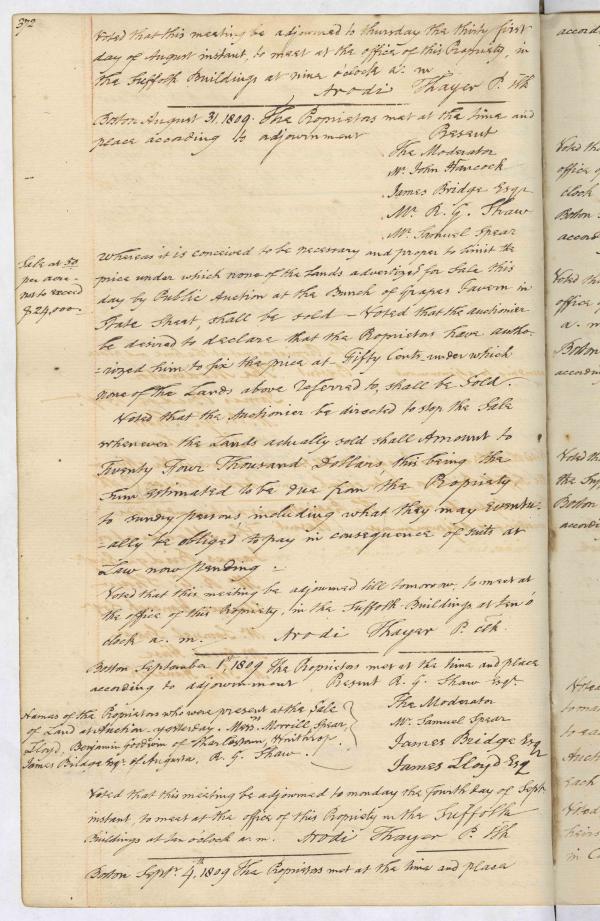 372
Voted that this meeting be adjourned to thursday the thirty first
day of August instant, to meet at the office of this Propriety, in
the Suffolk Buildings at nine o'clock a. m
Arodi Thayer P. Clk
Boston August 31. 1809. The Proprietors met at the time and
place according to adjournment Present
The Moderator
Mr. John Hancock
James Bridge Esqr
Mr. R. G. Shaw
Mr. Samuel Spear
Sale at 50
per acre
not to exceed
$24,000-
Whereas it is conceived to be necessary and proper to limit the
price under which none of the Lands advertized for Sale this
day by Public Auction at the Bunch of Grapes Tavern in
State Street, shall be sold - Voted that the auctionier
be desired to declare that the Proprietors have autho-
-rized him to fix the price at Fifty Cents under which
none of the Lands above referred to, shall be Sold.
Voted that the Auctionier be directed to stop the Sale
whenever the Lands actually sold shall Amount to
Twenty Four Thousand Dollars, this being the
Sum estimated to be due from the Propriety
to sundry persons, including what they may eventu-
-ally be obliged to pay in consequence of suits at
Law now pending -
Voted that this meeting be adjourned till tomorrow, to meet at
the office of this Propriety, in the Suffolk Buildings at ten o
clock a. m. Arodi Thayer P. Clk.
Boston September 1st 1809 The Proprietors met at the time and place
according to adjournment Present R. G. Shaw Esqr
The Moderator
Mr. Samuel Spear
James Bridge Esqr
James Lloyd Esq
Names of the Proprietors who were present at the Sale
of Land at Auction yesterday. Messrs Morrill, Spear,
Lloyd, Benjamin of Charlestown, Winthrop,
James Bridge Esqr. of Augusta, R. G. Shaw.
Voted that this meeting be adjourned to monday the fourth day of Septr
instant, to meet at the office of this Propriety in the Suffolk
Buildings at ten o'clock a. m. Arodi Thayer P. Clk
Boston Septr. 4th, 1809 The Proprietors met at the time and place